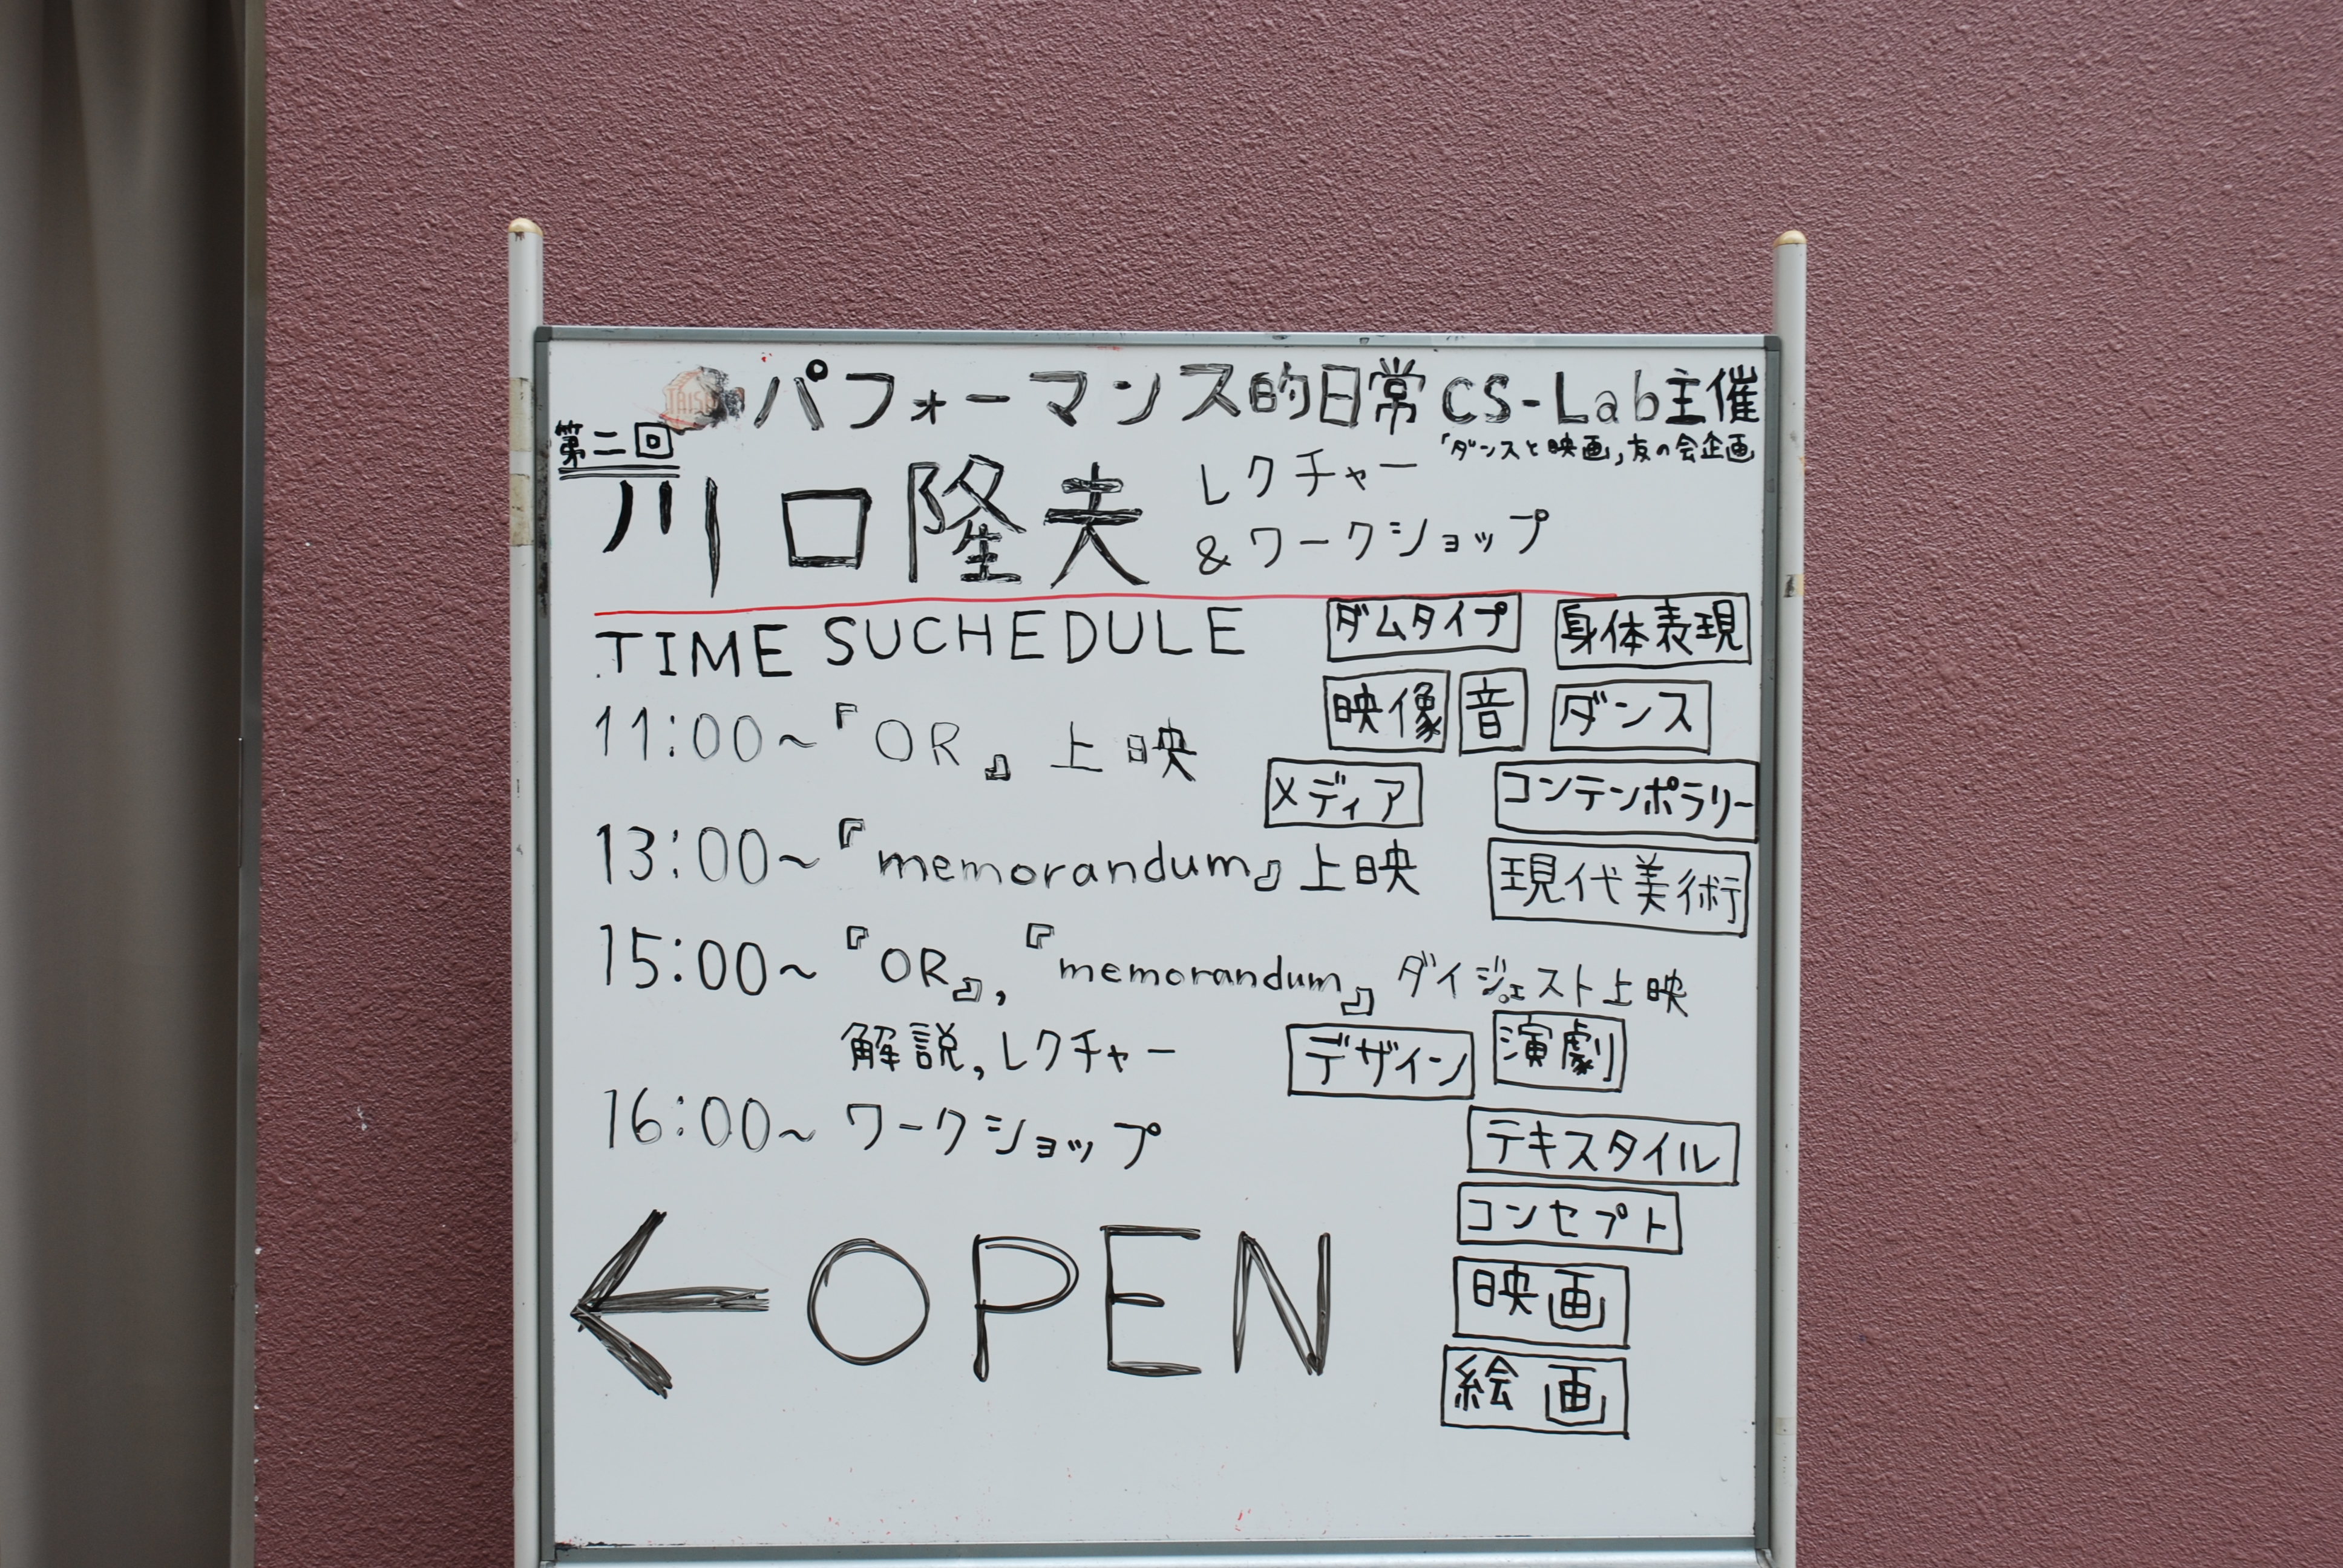 パフォーマンス的日常 CS-Lab主催
「ダンスと映画」友の会企画
第二回
川口隆夫 レクチャー
&ワークショップ
TIME SUCHEDULE
ダムタイプ 身体表現
映像 音 ダンス
11:00~『OR』上映
メディア コンテンポラリー
13:00~『memorandum』上映
現代美術
15:00~『OR』,『memorandum』ダイジェスト上映
解説,レクチャー
デザイン 演劇
16:00~ワークショップ
テキスタイル
コンセプト
←OPEN
映画
絵画